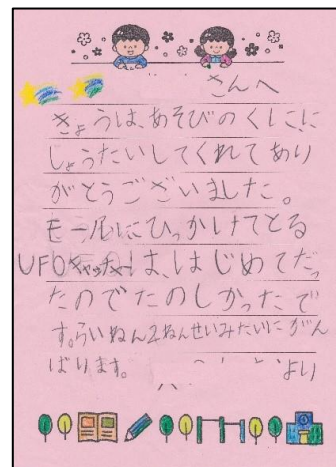 さんへ
きょうは、あそびのくにに
しょうたいしてくれてあり
がとうございました。
モールにひっかけてとる
UFOキャッチャーは、はじめてだっ
たのでたのしかったで
す。らいねん2ねんせいみたいにがん
ばります。
より